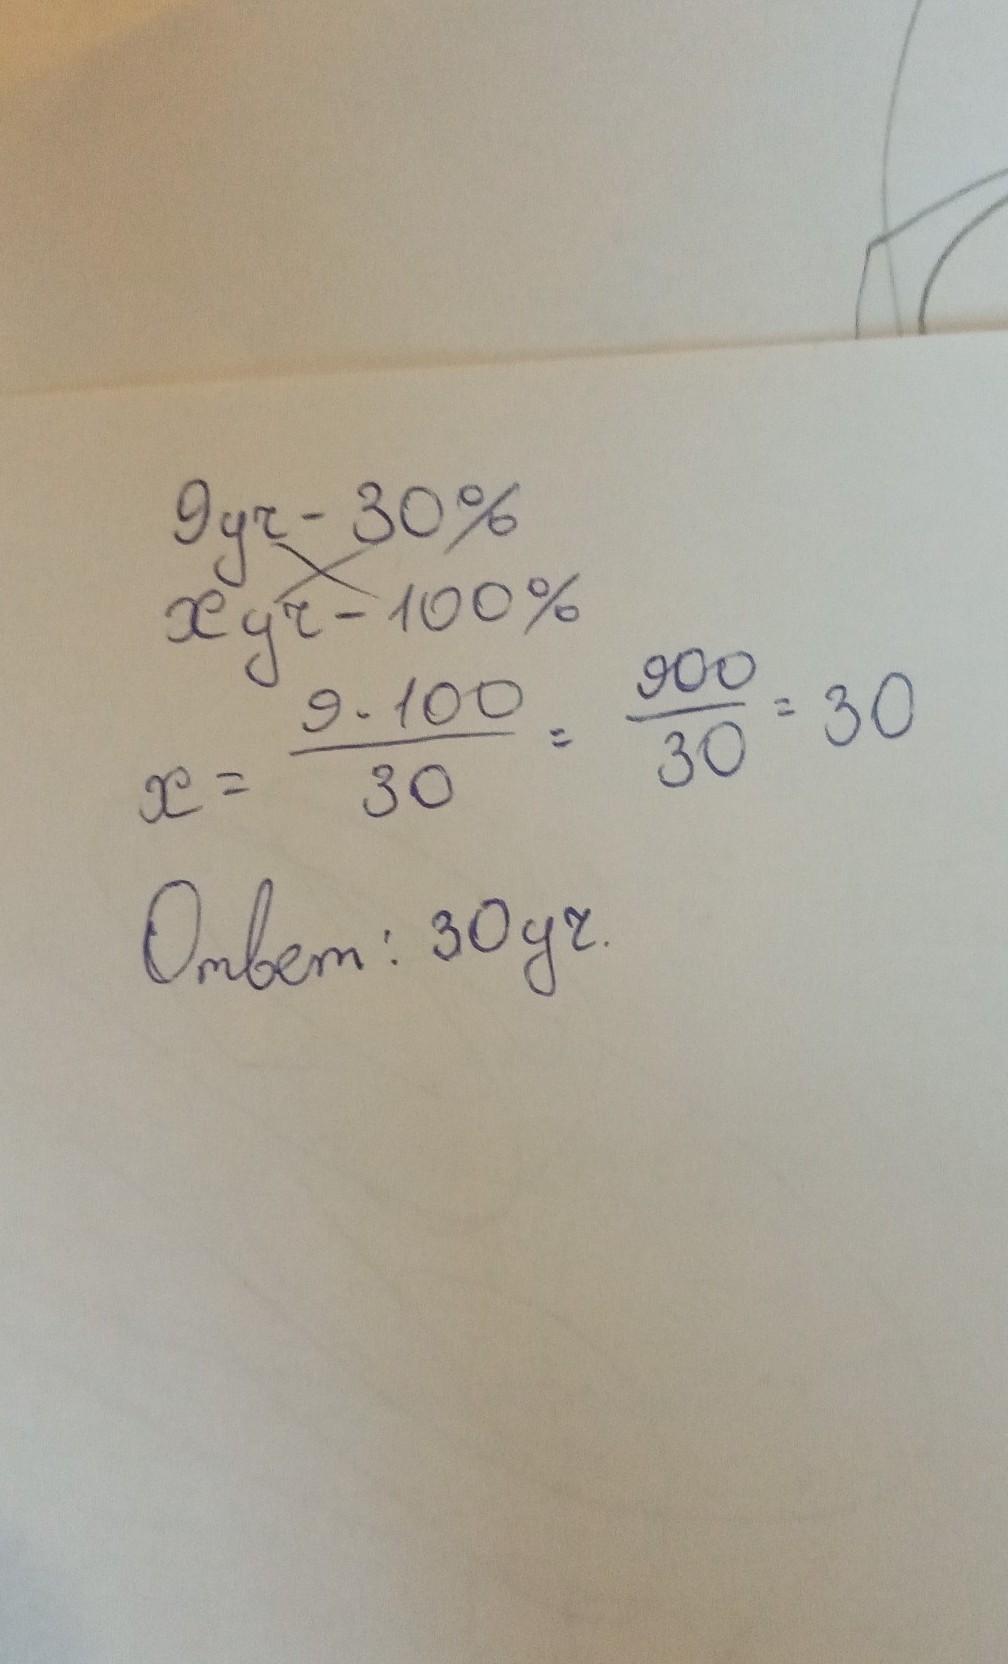 9уч - 30%
x уч - 100%
x = 9 · 100 / 30 = 900 / 30 = 30
Ответ: 30уч.